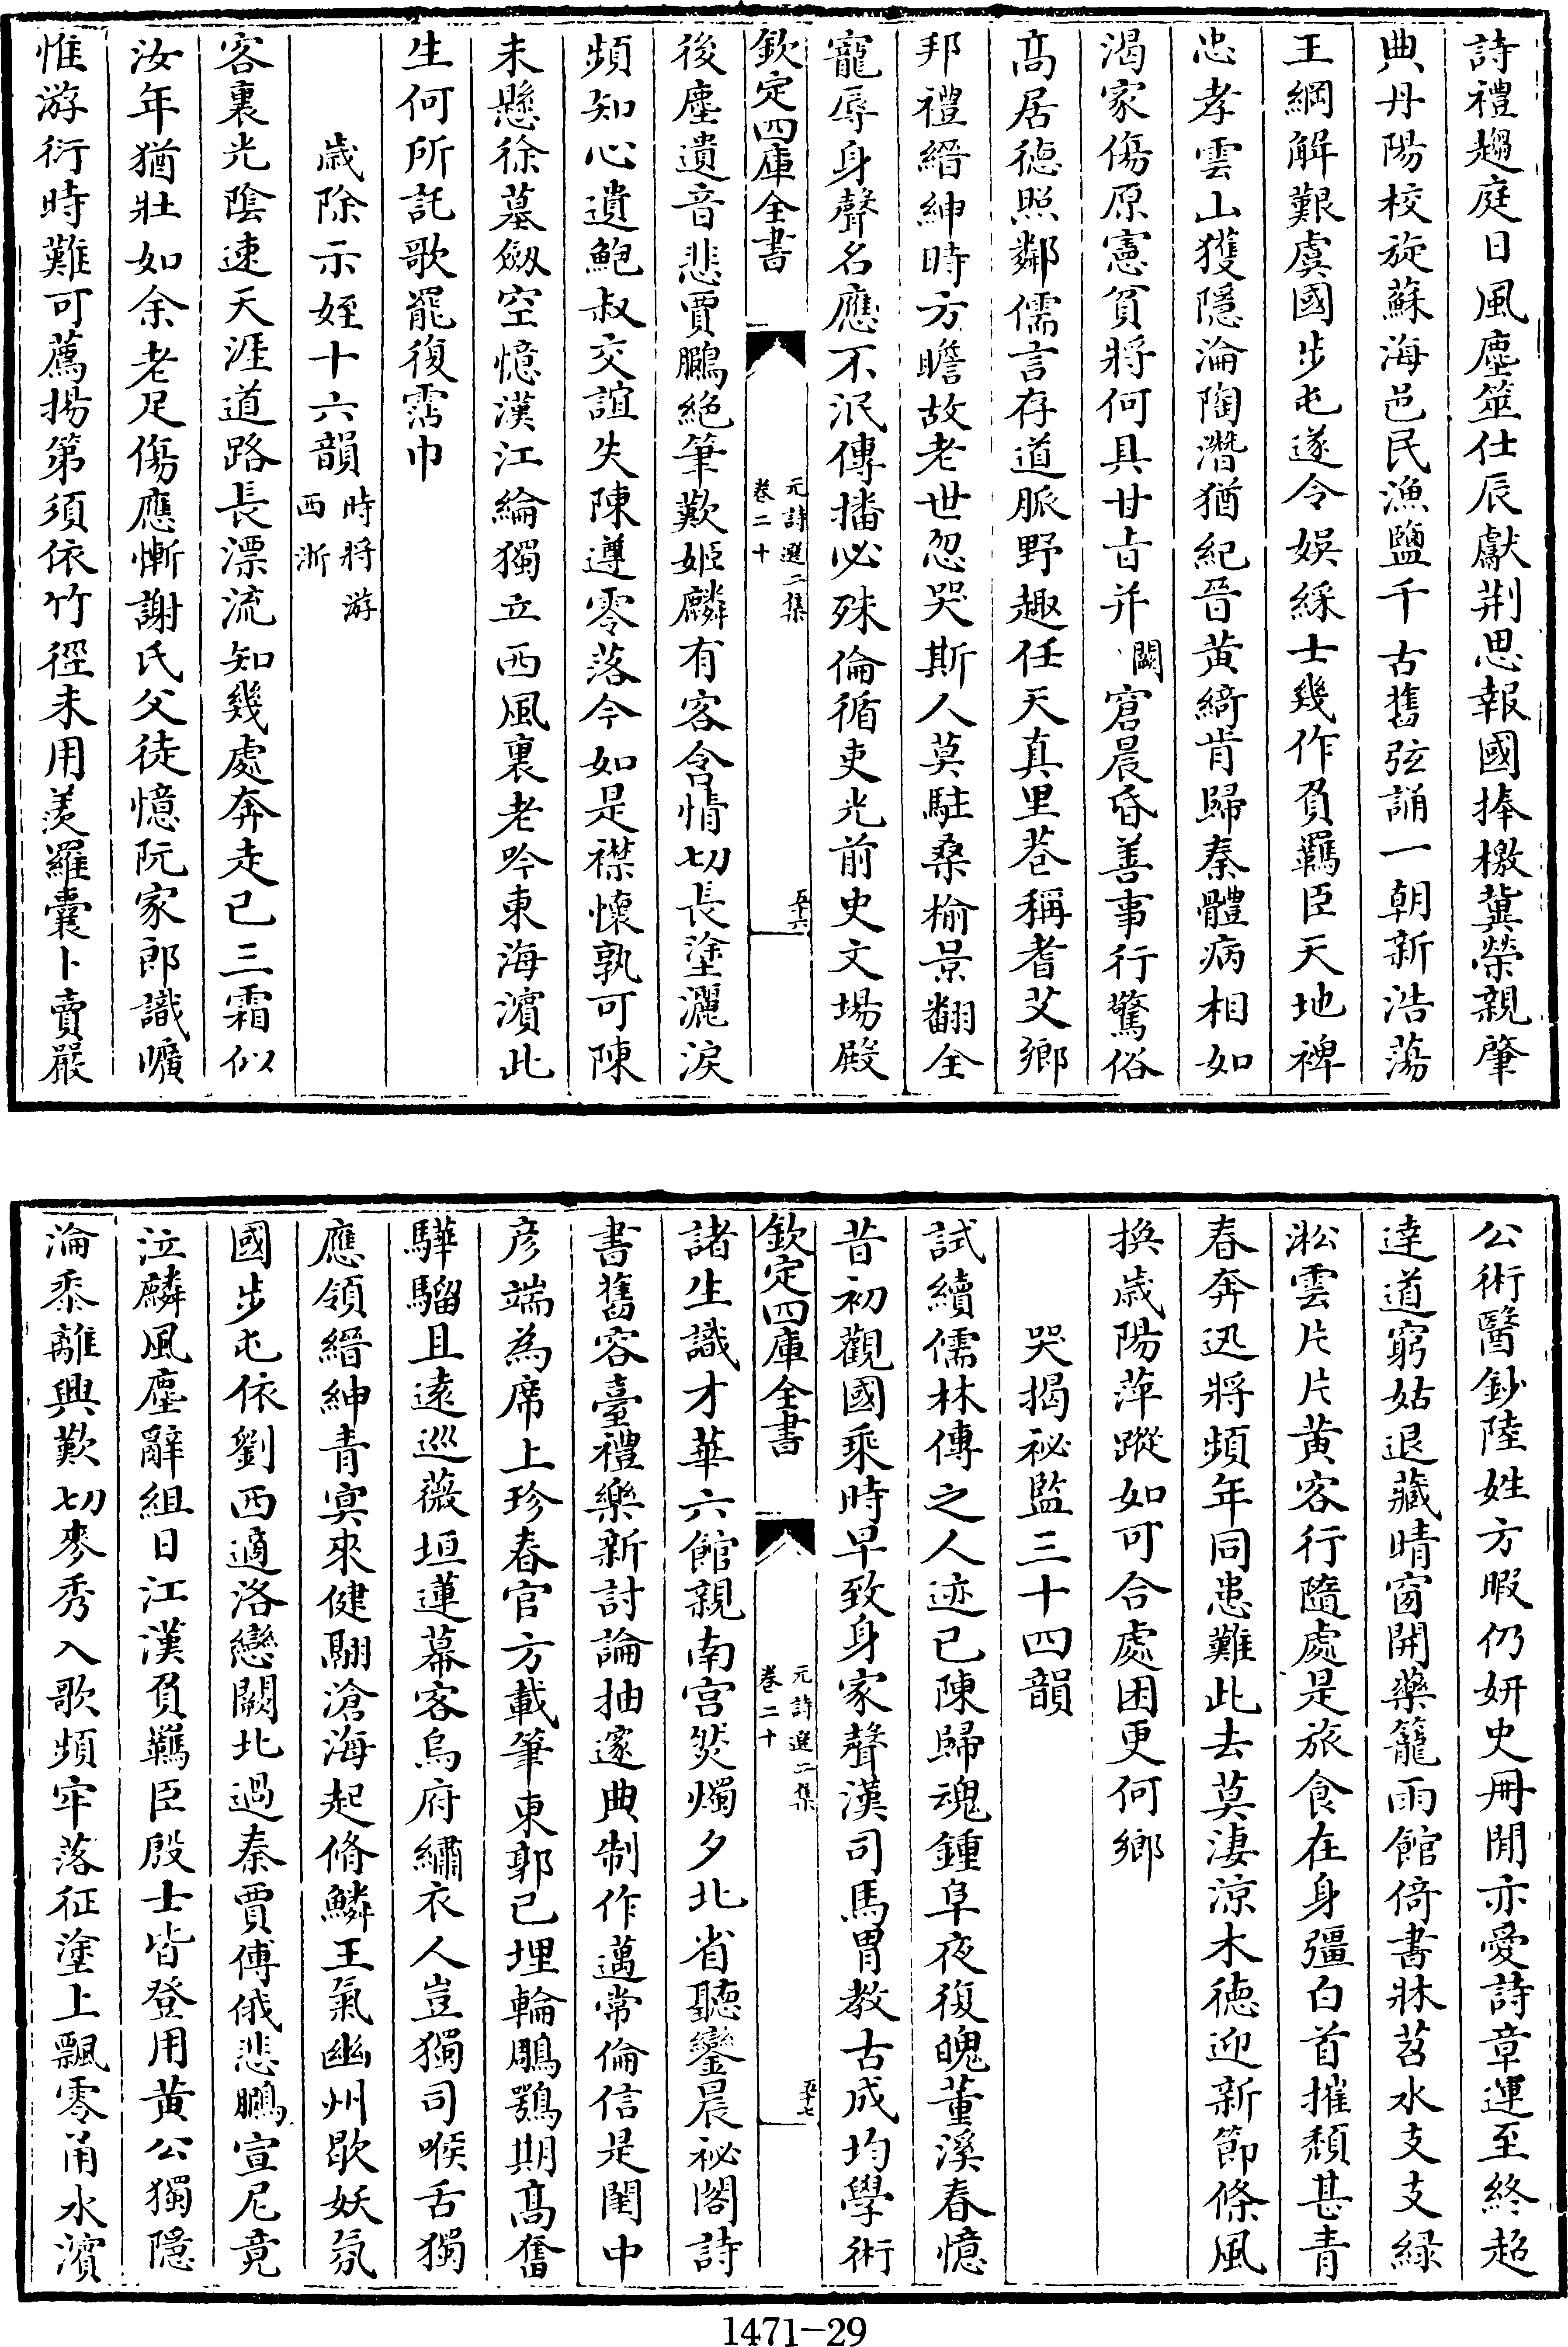 詩禮趨庭日風塵筮仕辰獻荆思報國捧檄冀榮親肇
典丹陽校旋蘇海邑民漁鹽千古舊弦誦一朝新浩蕩
王綱解艱虞國步屯遂令娱綵士幾作負羈臣天地禆
忠孝雲山獲隱淪陶潛猶紀晉黄綺肯歸秦體病相如
渴家傷原憲貧將何具甘㫖并闕窘晨昏善事行驚俗
髙居徳照鄰儒言存道脈野趣任天真里巷稱耆艾鄉
邦禮縉紳時方瞻故老世忽哭斯人莫駐桑榆景翻全
寵辱身聲名應不泯傳播必殊倫循吏光前史文場殿
欽定四庫全書
元詩選二集
卷二十
五十六
後塵遺音悲賈鵩絶筆歎姬麟有客含情切長塗灑淚
頻知心遺鮑叔交誼失陳遵零落今如是襟懷孰可陳
未懸徐墓劔空憶漢江綸獨立西風裏老吟東海濵此
生何所託歌罷復霑巾
歲除示姪十六韻時將游
西浙
客裏光陰速天涯道路長漂流知幾處奔走已三霜似
汝年猶壯如余老足傷應慚謝氏父徒憶阮家郎識曠
惟游衍時難可薦揚第須依竹徑未用羡羅囊卜賣嚴
公術醫鈔陸姓方暇仍妍史冊閒亦愛詩章運至終超
達道窮姑退藏晴窗開藥籠雨館倚書牀苕水支支緑
淞雲片片黄客行隨處是旅食在身彊白首摧頽甚青
春奔迅將頻年同患難此去莫淒涼木徳迎新節條風
換歲陽萍蹤如可合處困更何鄉
哭揭祕監三十四韻
試續儒林傳之人迹已陳歸魂鍾阜夜復魄董溪春憶
昔初觀國乘時早致身家聲漢司馬胄教古成均學術
欽定四庫全書
元詩選二集
卷二十
五十七
諸生識才華六館親南宫焚燭夕北省聽鑾晨祕閣詩
書舊容臺禮樂新討論抽邃典制作邁常倫信是閨中
彦端為席上珍春官方載筆東郭已埋輪鵰鶚期髙奮
驊騮且逺巡薇垣蓮幕客烏府繡衣人豈獨司喉舌獨
應領縉紳青㝠來健翮滄海起脩鱗王氣幽州歇妖氛
國步屯依劉西適洛戀闕北過秦賈傅俄悲鵩宣尼竟
泣麟風塵辭組日江漢負羈臣殷士皆登用黄公獨隱
淪黍離興歎切麥秀入歌頻牢落征塗上飄零甬水濵
1471-29